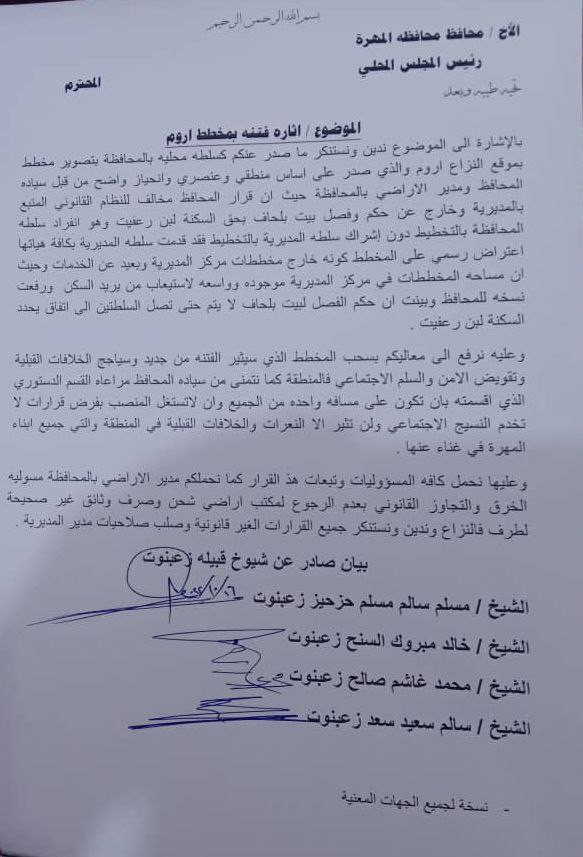 بسم الله الرحمن الرحيم
الأخ / محافظ محافظه المهرة
رئيس المجلس المحلي
المحترم
تحيه طيبه وبعد
الموضوع / اثاره فتنه بمخطط اروم
بالإشارة الى الموضوع ندين ونستنكر ما صدر عنكم كسلطه محليه بالمحافظة بتصوير مخطط
بموقع النزاع اروم والذي صدر على اساس منطقي وعنصري وانحياز واضح من قبل سياده
المحافظ ومدير الاراضي بالمحافظة حيث ان قرار المحافظ مخالف للنظام القانوني المتبع
بالمديرية وخارج عن حكم وفصل بيت بلحاف بحق السكنة لبن رعفيت وهو انفراد سلطه
المحافظة بالتخطيط دون إشراك سلطه المديرية بالتخطيط فقد قدمت سلطه المديرية بكافة هياتها
اعتراض رسمي على المخطط كونه خارج مخططات مركز المديرية وبعيد عن الخدمات وحيث
ان مساحه المخططات في مركز المديرية موجوده وواسعه لاستيعاب من يريد السكن ورفعت
نسخه للمحافظ وبينت ان حكم الفصل لبيت بلحاف لا يتم حتى تصل السلطتين الى اتفاق يحدد
السكنة لبن رعفيت .
وعليه نرفع الى معاليكم بسحب المخطط الذي سيثير الفتنه من جديد وسياجج الخلافات القبلية
وتقويض الامن والسلم الاجتماعي فالمنطقة كما نتمنى من سياده المحافظ مراعاه القسم الدستوري
الذي اقسمته بان تكون على مسافه واحده من الجميع وان لاتستغل المنصب بفرض قرارات لا
تخدم النسيج الاجتماعي ولن تثير الا النعرات والخلافات القبلية في المنطقة والتي جميع ابناء
المهرة في غناء عنها .
وعليها نحمل كافه المسؤوليات وتبعات هذ القرار كما نحملكم مدير الاراضي بالمحافظة مسوليه
الخرق والتجاوز القانوني بعدم الرجوع لمكتب اراضي شحن وصرف وثائق غير صحيحة
لطرف فالنزاع وندين ونستنكر جميع القرارات الغير قانونية وصلب صلاحيات مدير المديرية .
بيان صادر عن شيوخ قبيله زعبنوت
الشيخ / مسلم سالم مسلم حزحيز زعبنوت
الشيخ / خالد مبروك السنح زعبنوت
الشيخ / محمد غاشم صالح زعبنوت
الشيخ / سالم سعيد سعد زعبنوت
- نسخة لجميع الجهات المعنية